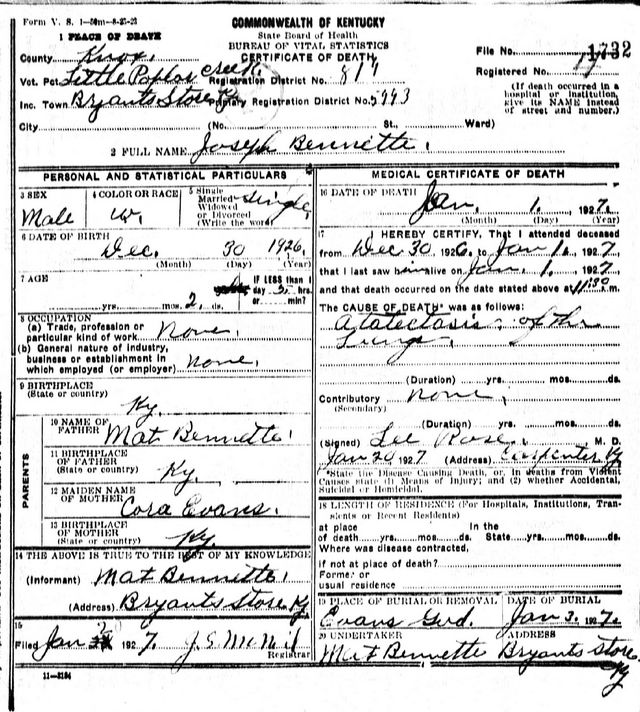 Form V. S. 1-50m-8-23-22
COMMONWEALTH OF KENTUCKY
State Board of Health
BUREAU OF VITAL STATISTICS
CERTIFICATE OF DEATH
1 PLACE OF DEATH
County Knox
File No. 1732
Vot. Pct. Little Poplar Creek Registration District No. 811
Registered No.
Inc. Town Bryants Store Ky Primary Registration District No. 5993
(If death occurred in a hospital or institution, give its NAME instead of street and number.)
City (No. St., Ward)
2 FULL NAME Joseph Bennette.
PERSONAL AND STATISTICAL PARTICULARS
3 SEX Male
4 COLOR OR RACE W.
5 Single Married Widowed or Divorced (Write the word) Single
6 DATE OF BIRTH Dec. 30 1926.
(Month) (Day) (Year)
7 AGE yrs. mos. 2 ds.
IF LESS than 1 day hrs. or min?
8 OCCUPATION
(a) Trade, profession or particular kind of work None.
(b) General nature of industry, business or establishment in which employed (or employer) None.
9 BIRTHPLACE (State or country) Ky.
PARENTS
10 NAME OF FATHER Mat Bennette.
11 BIRTHPLACE OF FATHER (State or country) Ky.
12 MAIDEN NAME OF MOTHER Cora Evans.
13 BIRTHPLACE OF MOTHER (State or country) Ky.
14 THE ABOVE IS TRUE TO THE BEST OF MY KNOWLEDGE
(Informant) Mat Bennette.
(Address) Bryants Store Ky
15
Filed Jan 1927. J. S. McNil
Registrar
11-3184
MEDICAL CERTIFICATE OF DEATH
16 DATE OF DEATH Jan. 1. 1927.
(Month) (Day) (Year)
17 I HEREBY CERTIFY, That I attended deceased
from Dec 30 1926. to Jan 1. 1927
that I last saw him alive on Jan. 1. 1927
and that death occurred on the date stated above at 11:30 m.
The CAUSE OF DEATH* was as follows:
Atatectasis of the
Lungs.
(Duration) yrs. mos. ds.
Contributory None.
(Secondary)
(Duration) yrs. mos. ds.
(Signed) Lee Rose. M. D.
Jan 20 1927 (Address) Carpenter Ky
*State the Disease Causing Death, or, in deaths from Violent Causes state (1) Means of Injury; and (2) whether Accidental, Suicidal or Homicidal.
18 LENGTH OF RESIDENCE (For Hospitals, Institutions, Transients or Recent Residents)
at place of death yrs. mos. ds. In the State yrs. mos. ds.
Where was disease contracted,
if not at place of death?
Former or usual residence
19 PLACE OF BURIAL OR REMOVAL Evans Gvd.
DATE OF BURIAL Jan 3. 1927.
20 UNDERTAKER Mat Bennette
ADDRESS Bryants Store Ky